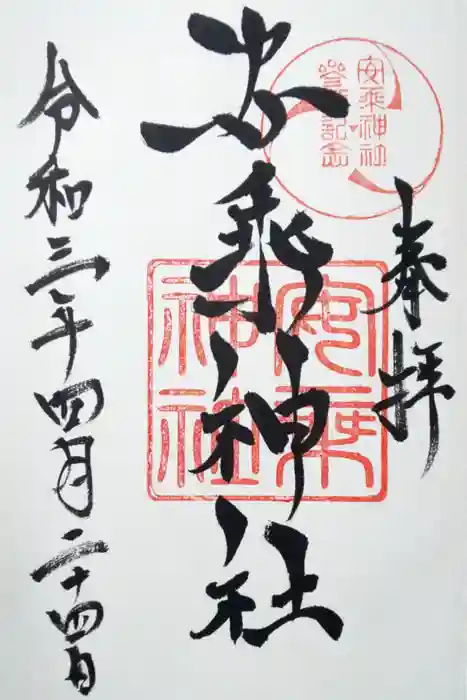 奉拝
安乗神社
参拝記念
安乗神社
安乗神社
令和三年四月二十四日